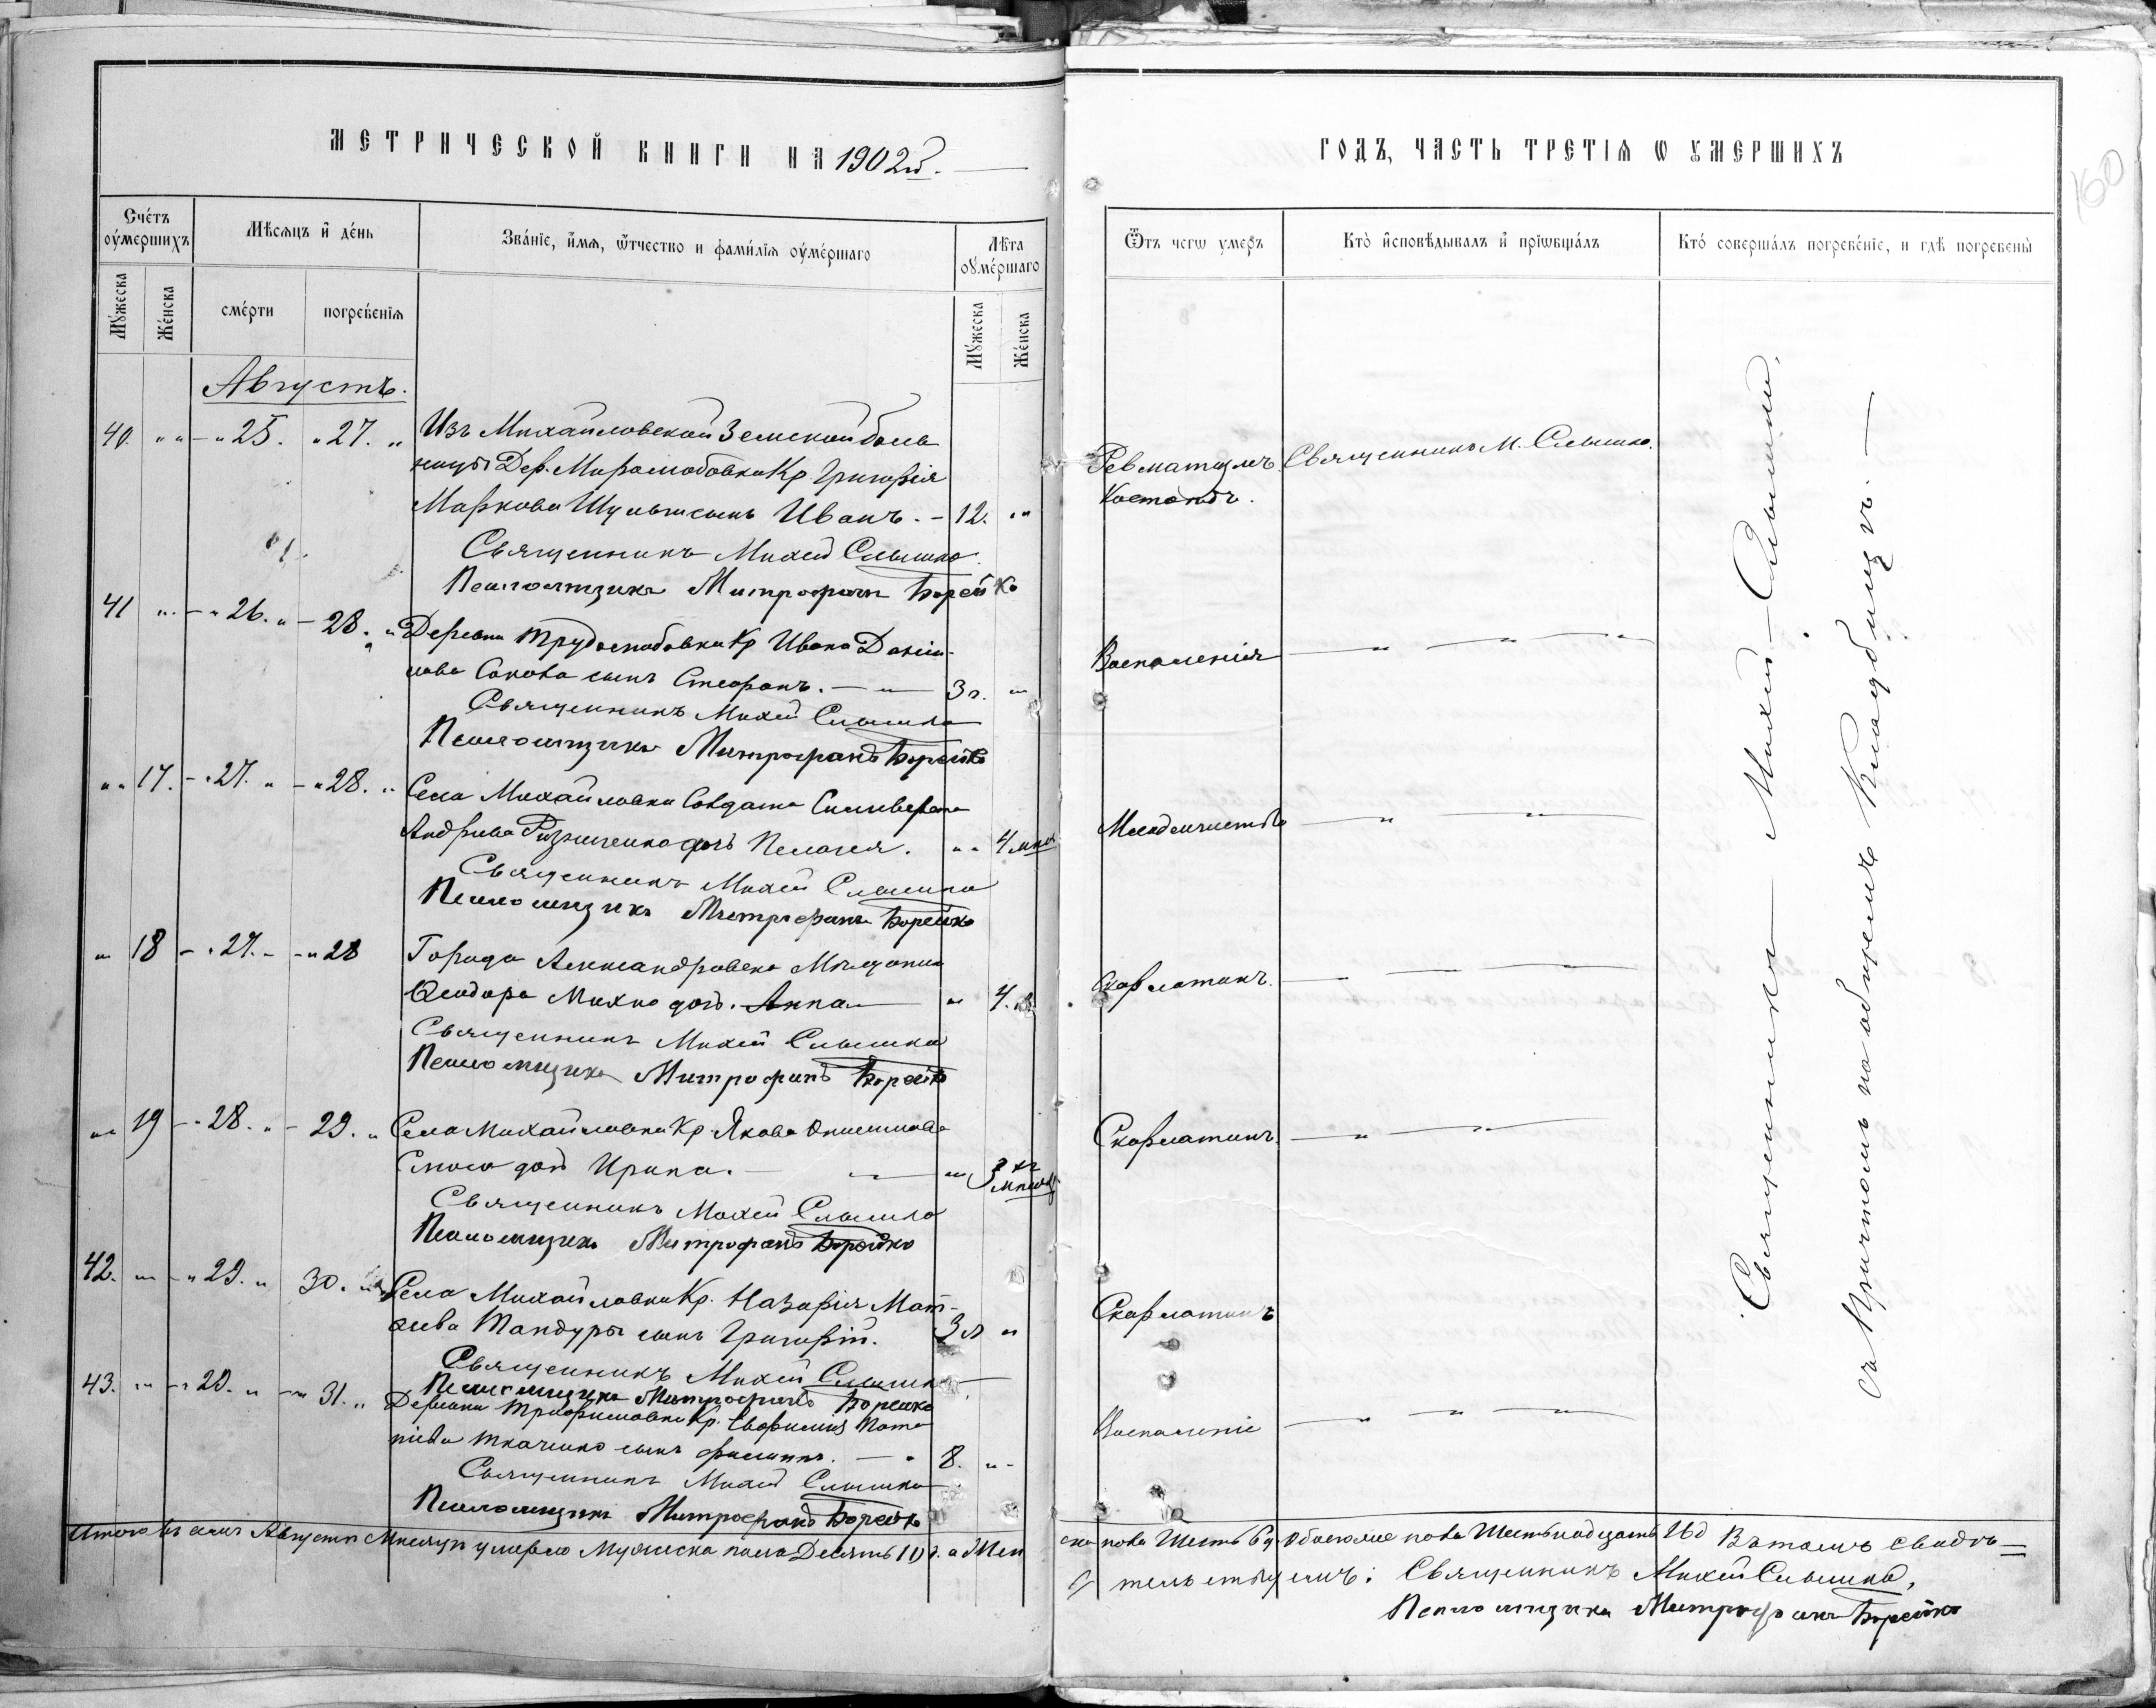 МЕТРИЧЕСКОЙ КНИГИ НА 1902й.
Счетъ оумершихъ
Мѣсяцъ и день
Званіе, имя, ѿтчество и фамилія оумершаго
Лѣта оумершаго
Мужеска
Женска
смерти
погребенія
Мужеска
Женска
Августъ.
40. " " - " 25. " 27. " Изъ Михайловской Земской боль
ницы Дер. Кр. Григорія
Маркова сынъ Иванъ. - 12. " "
Священникъ Михей Слышко
Псаломщикъ Митрофанъ Борейко
41 " - " 26. " - 28. " Деревни Трудолюбовки Кр Ивана Даніи-
лова Сокова сынъ Стефанъ. - " - 3 г. "
Священникъ Михей Слышко
Псаломщикъ Митрофанъ Борейко
" " 17. - " 27. " - " 28. " Села Михайловки Солдата Сильверста
Андреева дочь Пелагея. " " 4 мца
Священникъ Михей Слышко
Псаломщикъ Митрофанъ Борейко
" 18 - " 27. - - " 28 Города Александровска Мѣщанина
Ѳеодора Махно дочь. Анна - " 4.
Священникъ Михей Слышко
Псаломщикъ Митрофанъ Борейко
" 19 - " 28. " - 29. " Села Михайловки Кр. Якова
дочь Ирина. - " 3 хъ
мѣсяц
Священникъ Михей Слышко
Псаломщикъ Митрофанъ Борейко
42. " - " 29. " 30. " Села Михайловки Кр. Назарія Мат-
ѳеева Тандуры сынъ Григорій. 3 л "
Священникъ Михей Слышко
Псаломщикъ Митрофанъ Борейко
43. " - " 29. " - " 31. " Деревни Трифоновки Кр. Евфимія Пота
піева Ткаченко сынъ Филиппъ. - " 8. " -
Священникъ Михей Слышко
Псаломщикъ Митрофанъ Борейко
Итого въ семъ Августѣ Мѣсяцѣ умерло Мужеска пола Десять 10 д. а Жен
ГОДЪ, ЧАСТЬ ТРЕТІЯ Ѡ УМЕРШИХЪ
160
Ѿтъ чегѡ умеръ
Кто исповѣдывалъ и прїѡбщалъ
Кто совершалъ погребеніе, и гдѣ погребены
Ревматизмъ Священникъ М. Слышко.
Костей.
Воспаленія - " - " - " -
Младенчества - " - " -
Скарлатинъ. - " - " - " -
Скарлатинъ. - " - " -
Скарлатинъ
Воспаленіе - " - " - " -
Священникъ - Михей - Слышко,
съ Причтомъ на общемъ Кладбищѣ. -
ска пола Шесть 6 д Обоего пола Шестнадцать 16 д Въ томъ свидѣ-
тельствуемъ: Священникъ Михей Слышко,
Псаломщикъ Митрофанъ Борейко